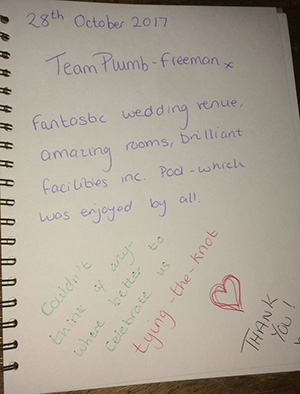 28th October 2017
Team Plumb-Freeman x
Fantastic wedding venue,
amazing rooms, brilliant
facilities inc. Pool - which
was enjoyed by all.
Couldn't
think of any-
where better to
celebrate us
tying-the-knot
THANK
YOU!